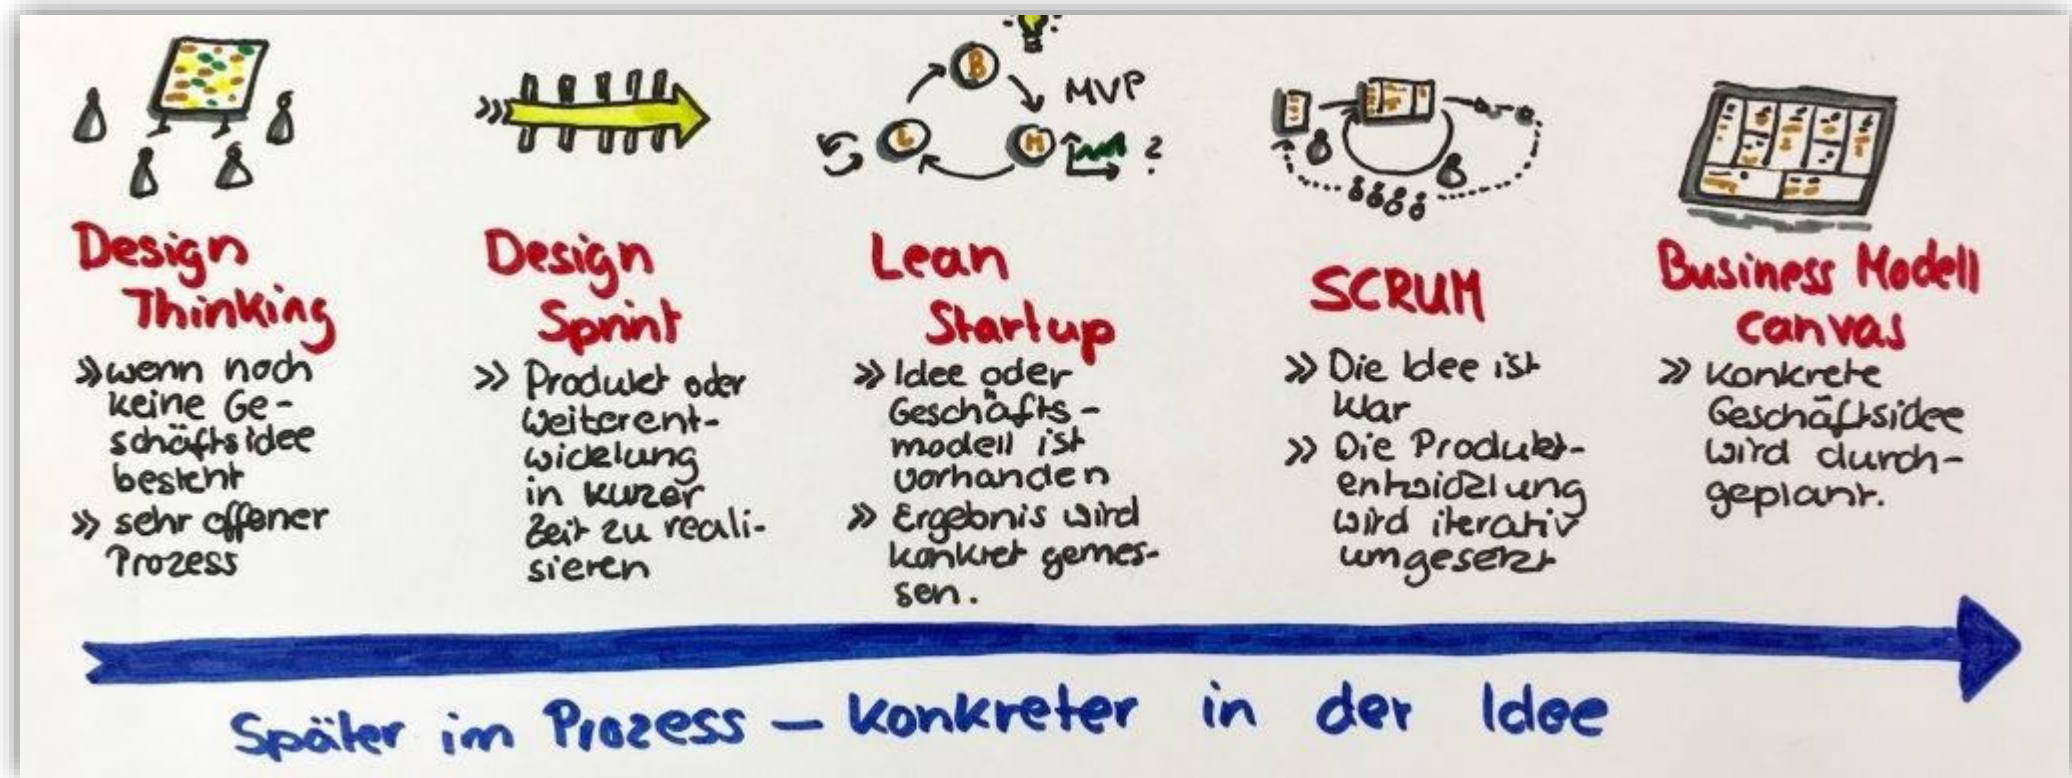 B
MVP
L
M
?
Design
Thinking
» wenn noch
keine Ge-
schäftsidee
besteht
» sehr offener
Prozess
Design
Sprint
» Produkt oder
Weiterent-
wicklung
in kurzer
Zeit zu reali-
sieren
Lean
Startup
» Idee oder
Geschäfts-
modell ist
vorhanden
» Ergebnis wird
konkret gemes-
sen.
SCRUM
» Die Idee ist
klar
» Die Produkt-
entwicklung
wird iterativ
umgesetzt
Business Modell
Canvas
» Konkrete
Geschäftsidee
wird durch-
geplant.
Später im Prozess – konkreter in der Idee